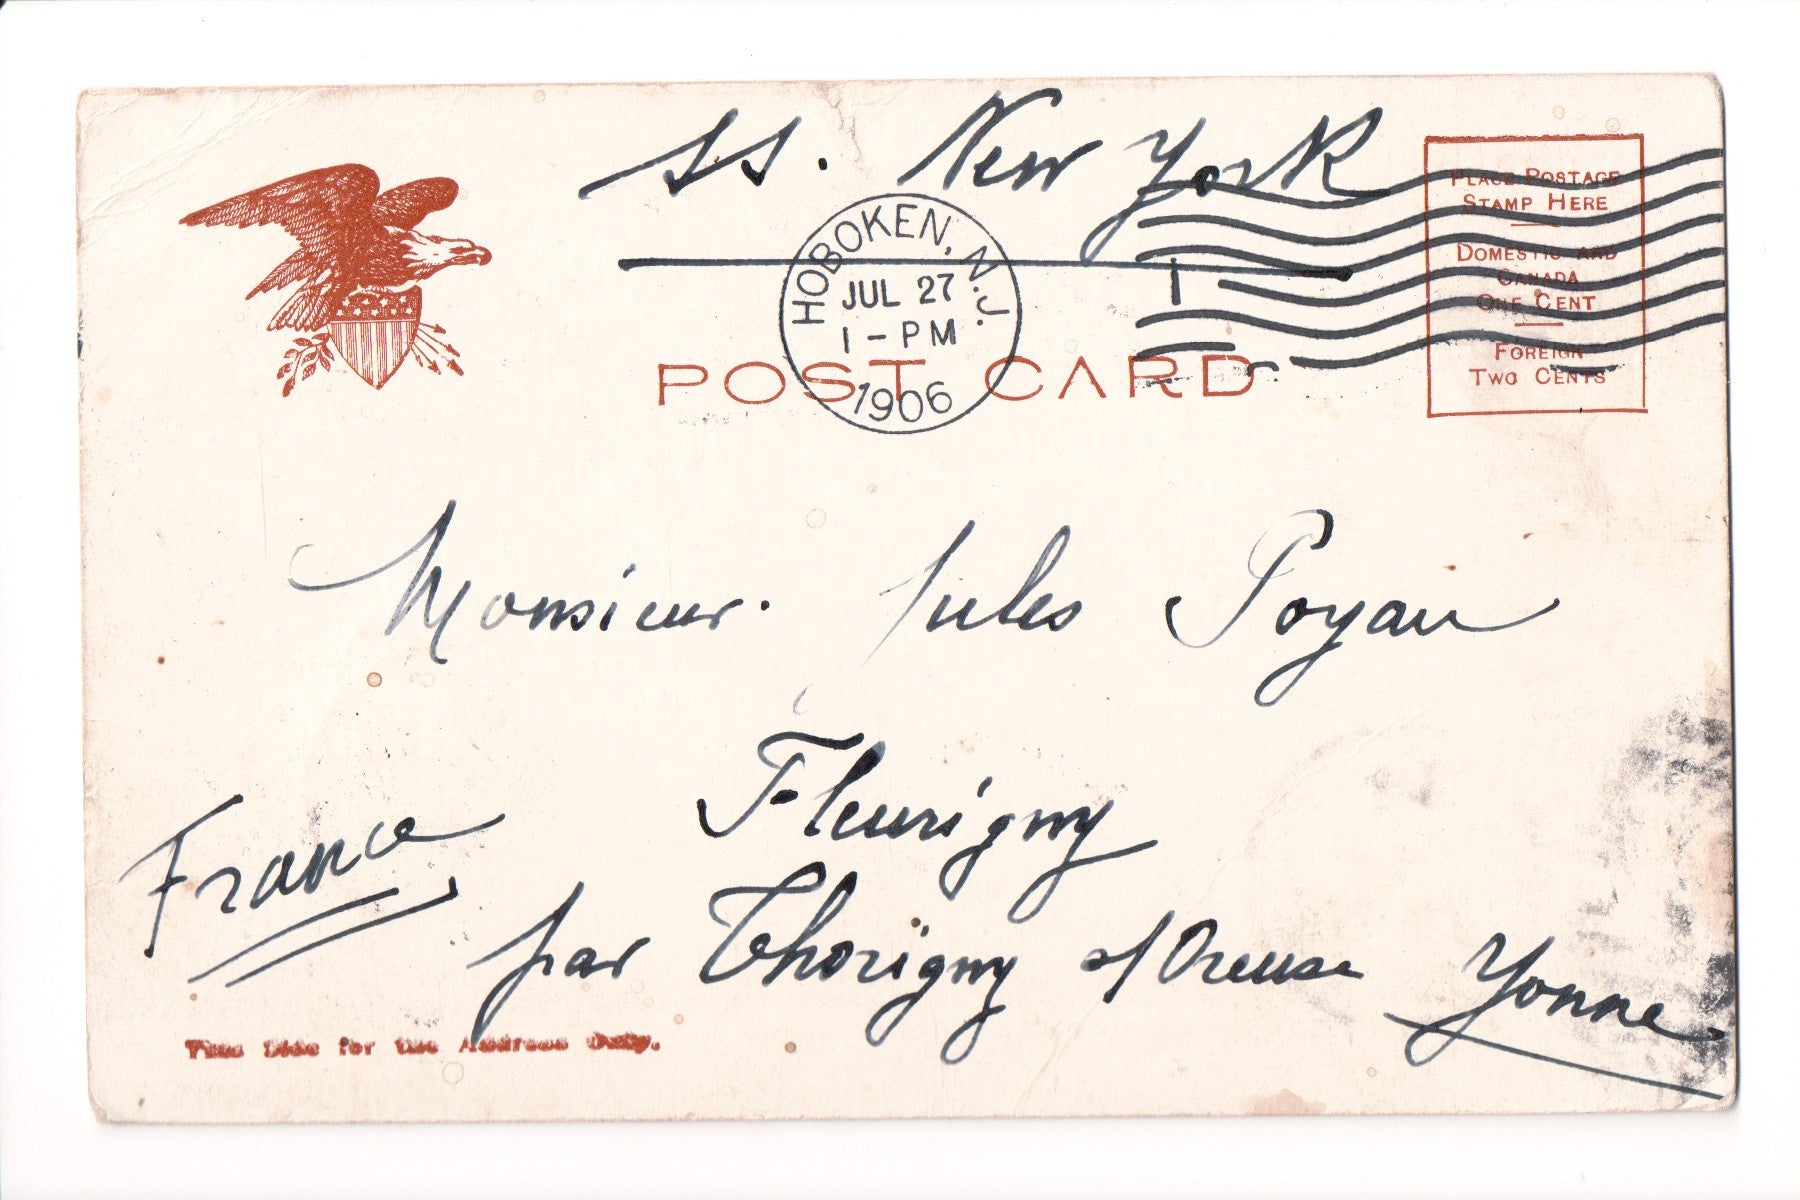 ss. New York
HOBOKEN, N.J.
JUL 27
1 - PM
1906
1
POST CARD
PLACE POSTAGE
STAMP HERE
DOMESTIC AND
CANADA
ONE CENT
FOREIGN
TWO CENTS
Monsieur. Jules Poyau
Fleurigny
France
par Thorigny s/ Oreuse Yonne
This Side for the Address Only.